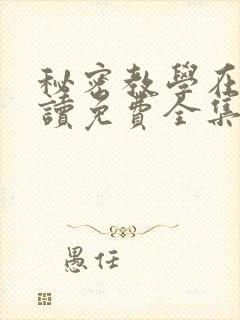 秘密教學在
讀免費全集
愚任